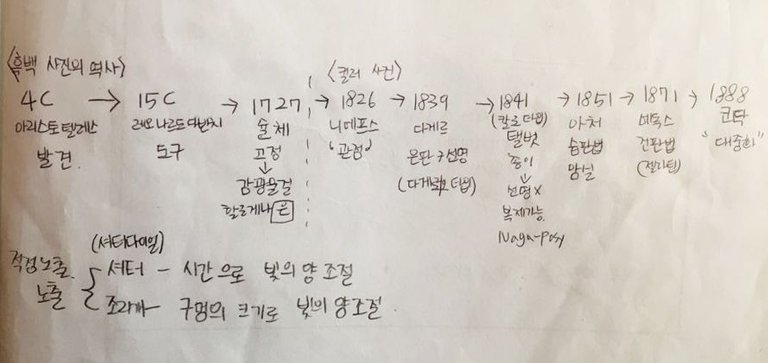 <흑백 사진의 역사> <컬러 사진>
4C → 15C → 1727 → 1826 → 1839 → 1841 → 1851 → 1871 → 1888
아리스토텔레스 레오나르도다빈치 슐체 니에프스 다게르 (칼로타입) 아처 매독스 코닥
발견. 도구 "관점" 탤벗 습판법 건판법 "대중화"
↓ 은판 선명 종이 암실 (젤라틴)
감광물질 (다게레오타입) ↓
할로게나 은 선명X
복제가능.
Naga-Posi
적정노출. (셔터타임)
노출 셔터 - 시간으로 빛의 양 조절
조리개 구멍의 크기로 빛의 양조절.